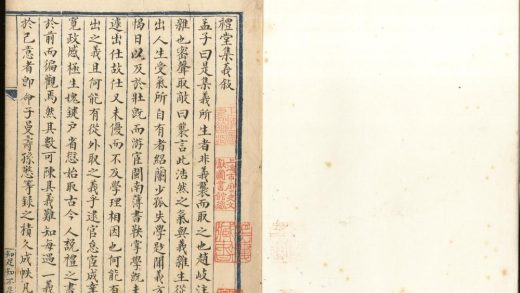 禮堂集義敘
孟子曰是集義所生者非義襲而取之也趙岐注
雜也密聲取敵曰襲言此浩然之氣與義雜生從
出人生受氣所自有者紹蘭少孤失學
惕日以及於壯既而游宦閩南薄書鞅掌學既未
遽出仕故仕又未優而不及學理相因也何能有
出之義且何能有從外取之義乎逮官怠宦成辜
寬政感極生愧鍵戶省愆始取古今人說禮之書
於前而徧觀焉然其數可陳其義難知每遇一義
於己意者即命子曼壽孫懋等錄之積久成帙凡
知足知不足